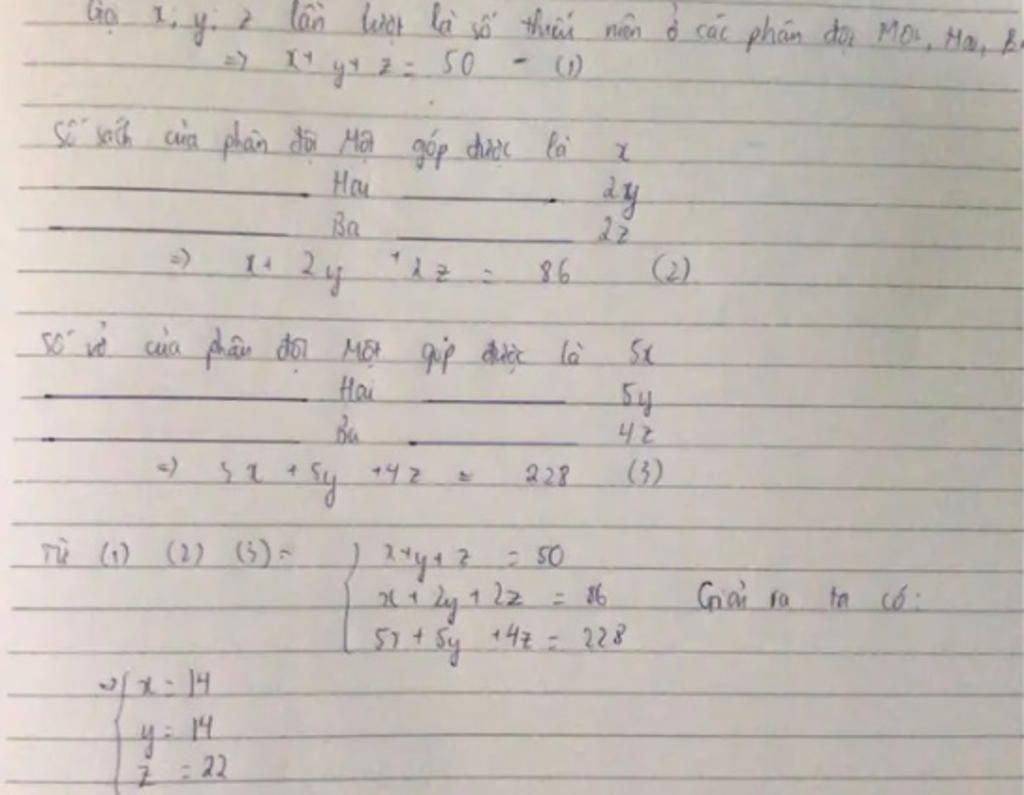 Gọi x; y; z lần lượt là số thiếu niên ở các phân đội Một, Hai, Ba
=> x + y + z = 50 - (1)
Số sách của phân đội Một góp được là x
Hai 2y
Ba 2z
=> x + 2y + 2z = 86 (2)
Số vở của phân đội Một góp được là 5x
Hai 5y
Ba 4z
=> 5x + 5y + 4z = 228 (3)
Từ (1) (2) (3) = { x + y + z = 50
x + 2y + 2z = 86 Giải ra ta có:
5x + 5y + 4z = 228
=> { x = 14
y = 14
z = 22